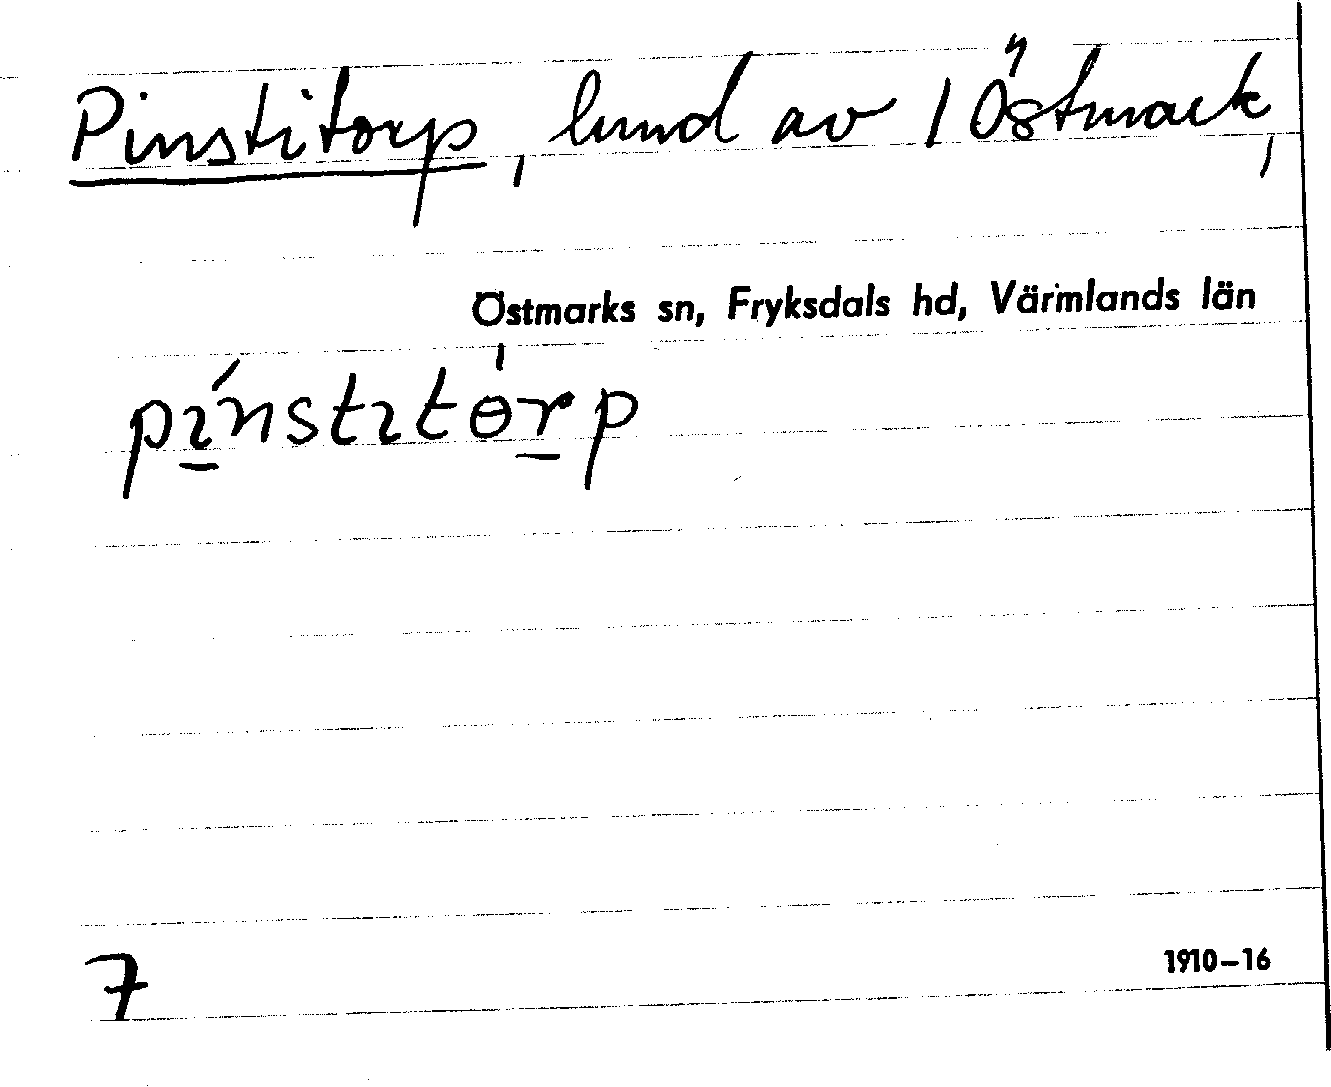 Pinstitorp, lund av 1 Östmark,
Östmarks sn, Fryksdals hd, Värmlands län
pɩ́nstɩtɵ̀rp
7
1910–16